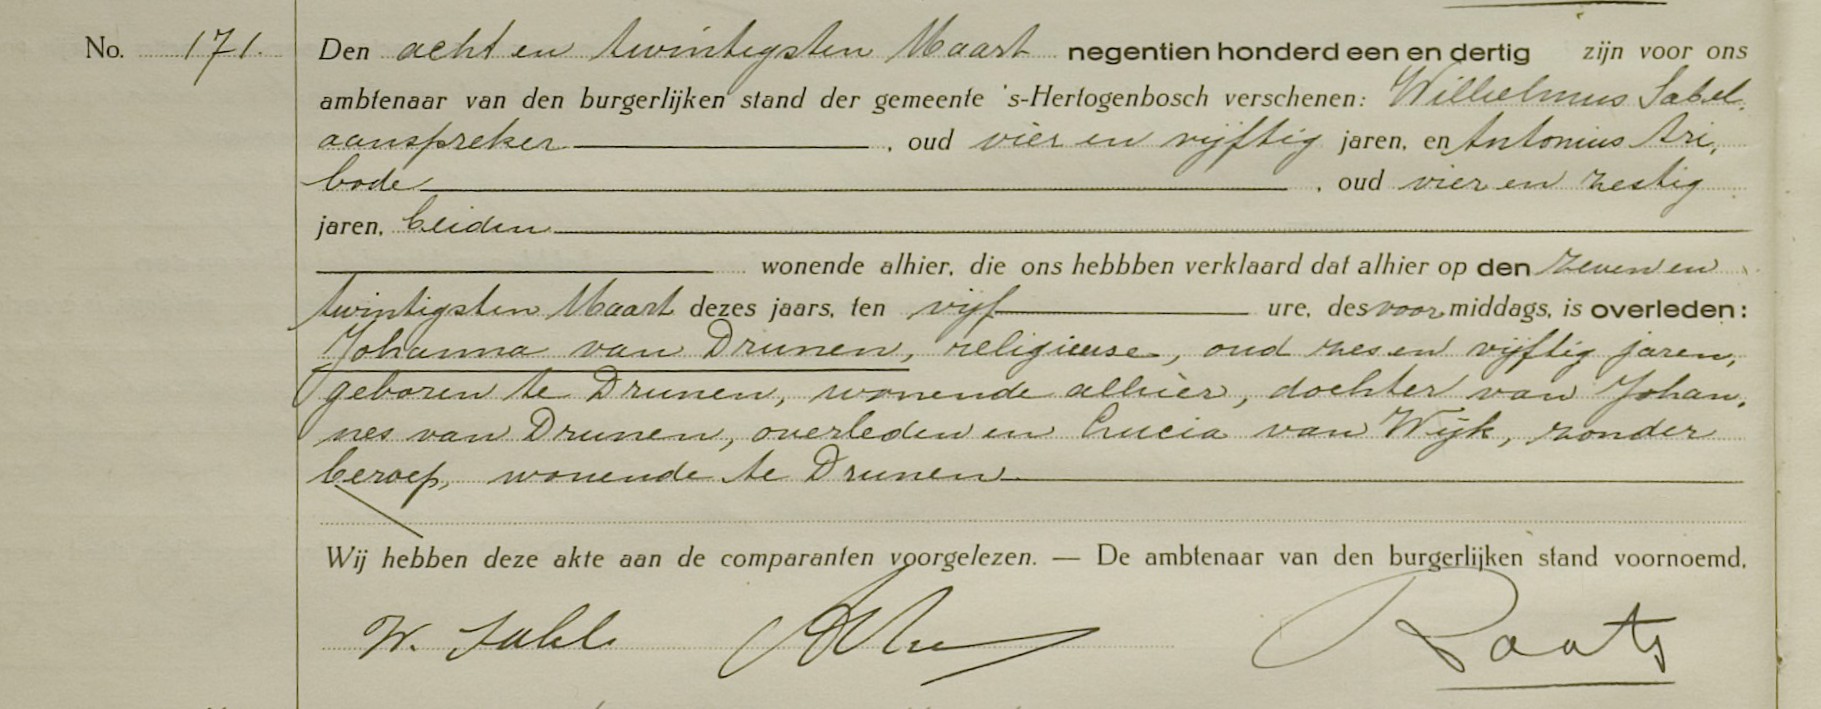 No. 171. Den acht en twintigsten Maart negentien honderd een en dertig zijn voor ons
ambtenaar van den burgerlijken stand der gemeente 's-Hertogenbosch verschenen: Wilhelmus Sabel,
aanspreker, oud vier en vijftig jaren, en Antonius Ari,
bode, oud vier en zestig
jaren, beiden
wonende alhier, die ons hebbben verklaard dat alhier op den zeven en
twintigsten Maart dezes jaars, ten vijf ure, des voormiddags, is overleden:
Johanna van Drunen, religieuse, oud zes en vijftig jaren,
geboren te Drunen, wonende alhier, dochter van Johan,
nes van Drunen, overleden en Lucia van Wijk, zonder
beroep, wonende te Drunen
Wij hebben deze akte aan de comparanten voorgelezen. — De ambtenaar van den burgerlijken stand voornoemd,
W. Sabel Raats